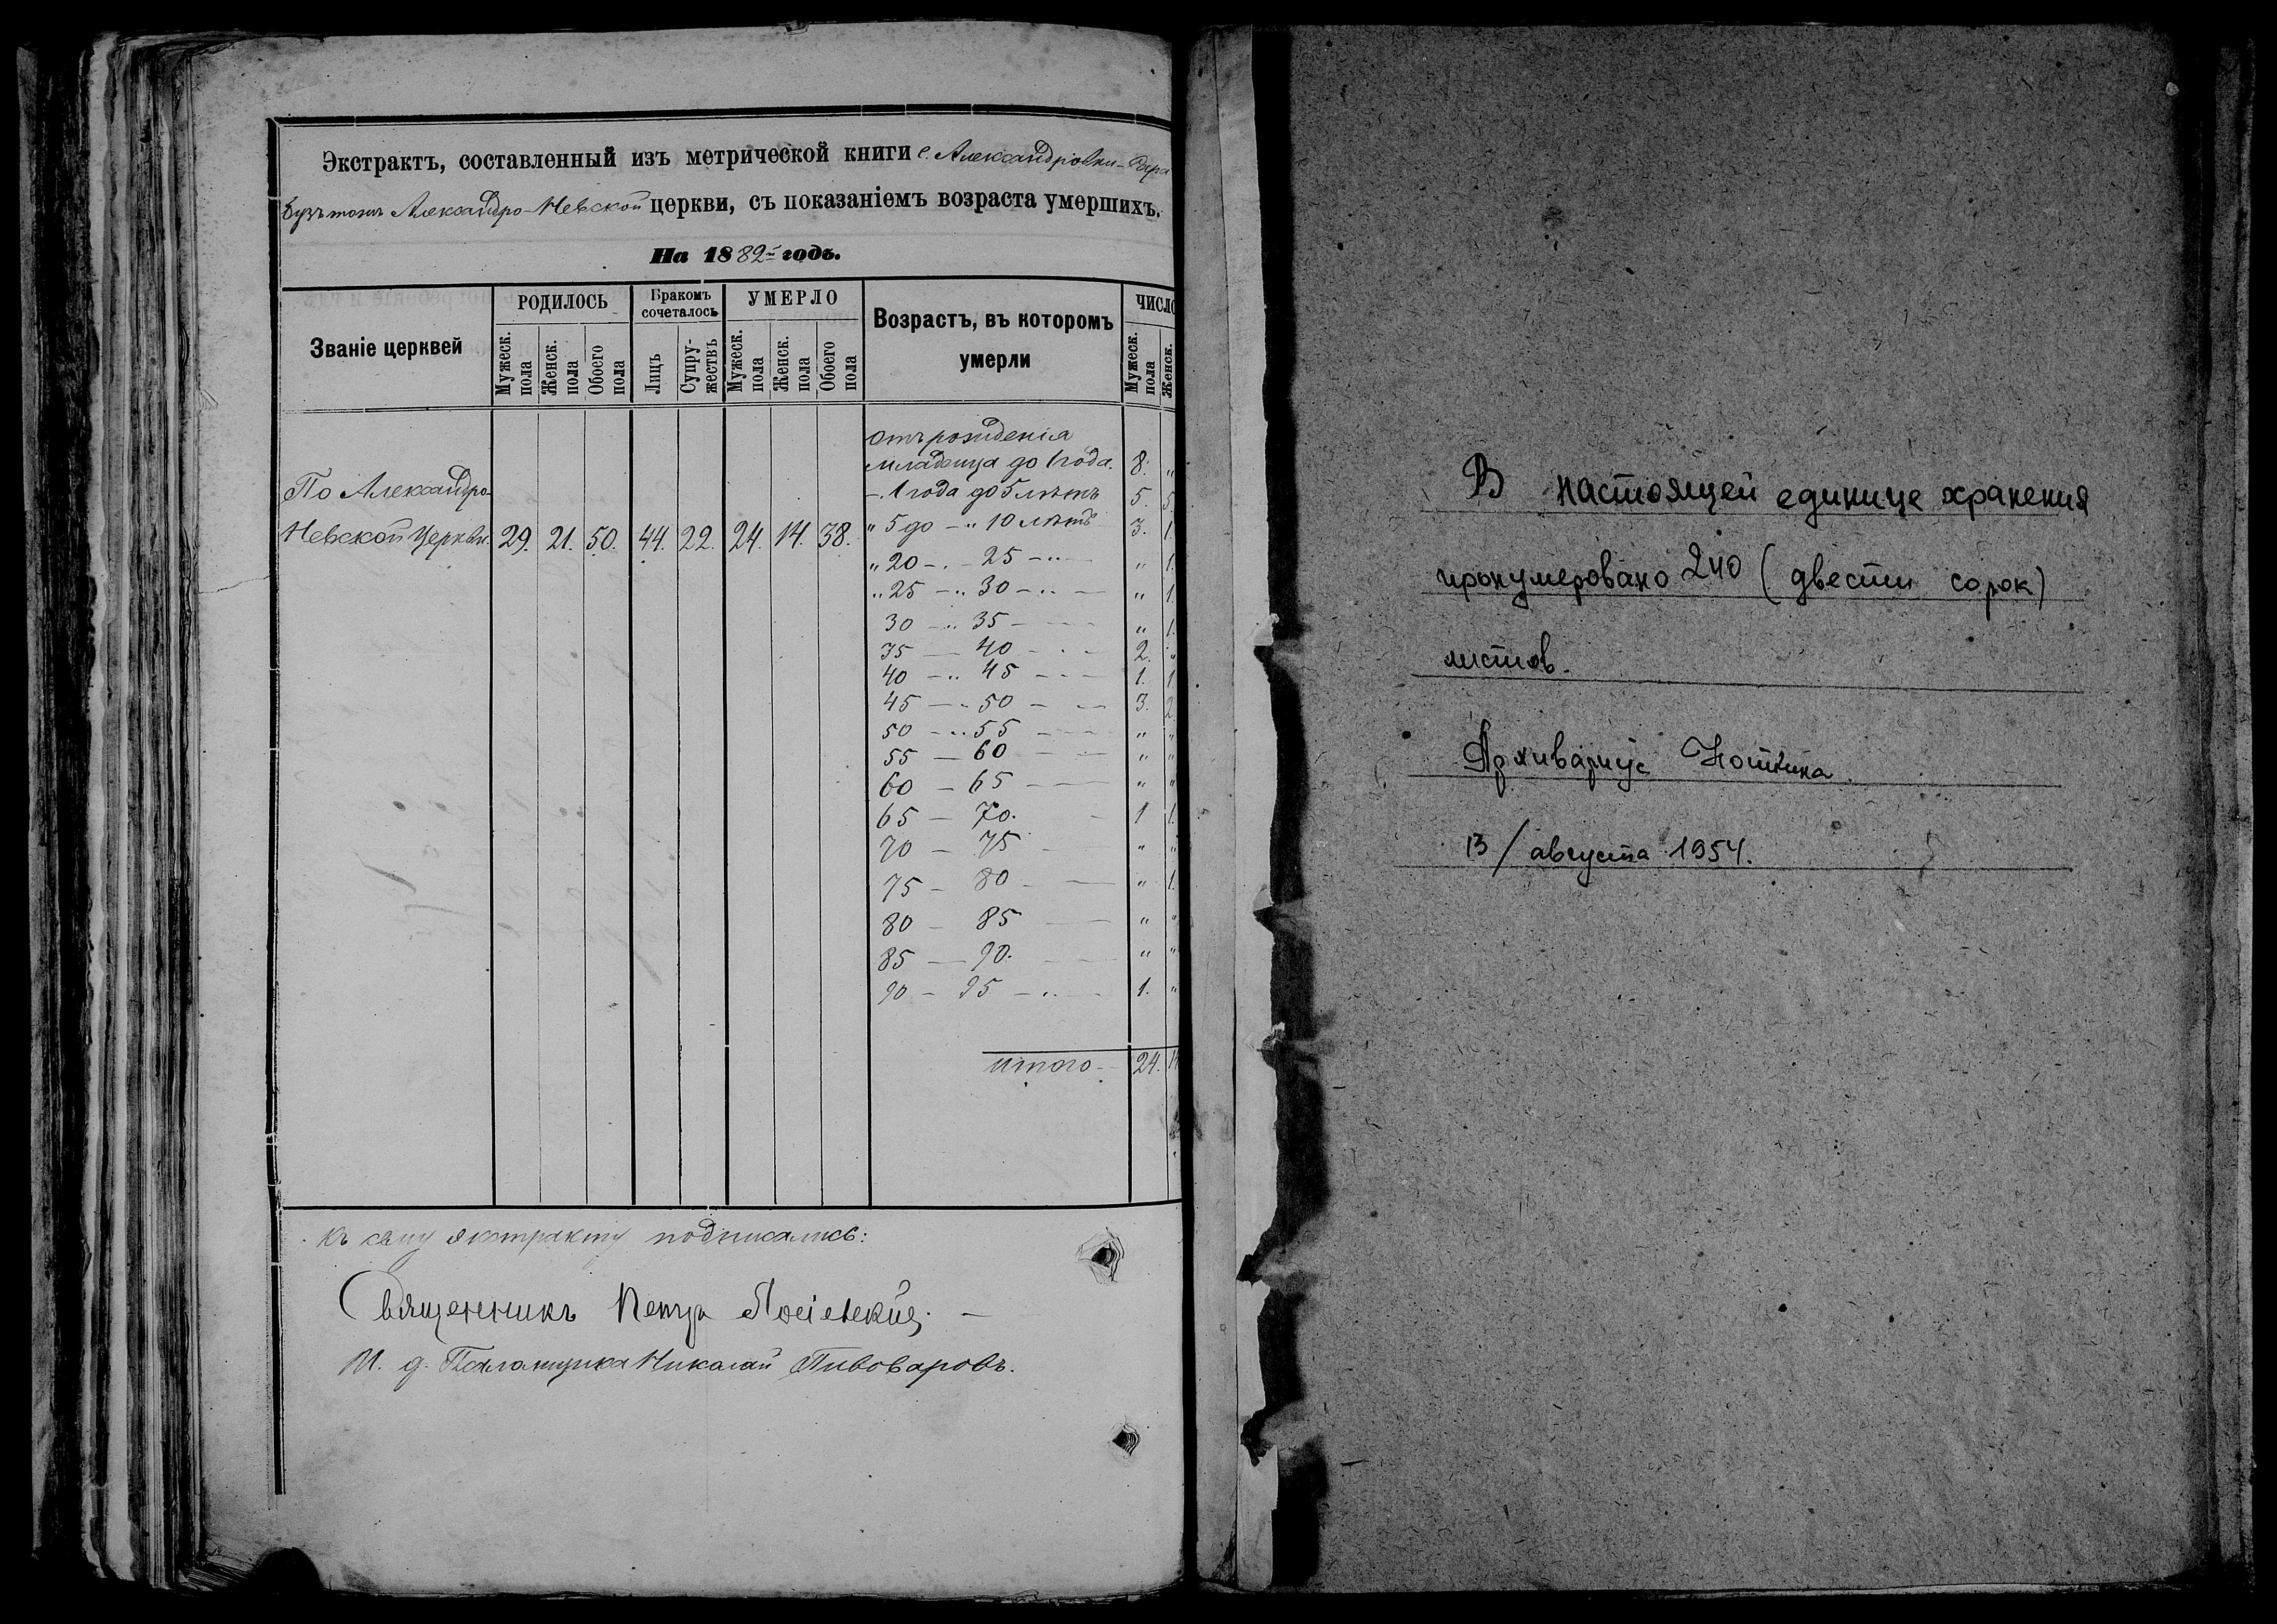 Экстрактъ, составленный изъ метрической книги с. Александровки-
Александро-Невской церкви, съ показаніемъ возраста умершихъ.
На 1882й годъ.
Званіе церквей
РОДИЛОСЬ
Бракомъ сочеталось
УМЕРЛО
Возрастъ, въ которомъ умерли
ЧИСЛО
Мужеск. пола
Женск. пола
Обоего пола
Лицъ
Супружествъ
Мужеск. пола
Женск. пола
Обоего пола
Мужеск. пола
Женск.
По Александро-
Невской Церкви. 29. 21. 50. 44. 22. 24. 14. 38.
отъ рожденія
младенца до 1 года. 8. „
-. 1 года до 5 лѣтъ 5. 5.
„ 5 до - „ 10 лѣтъ 3. 1.
„ 20 - . - 25 - „ — „ 1.
„ 25 - „ 30 - „ — „ 1.
30 - „ 35 - — „ 1.
35 — 40 - - - 2. „
40 - „ 45 - - - 1. 1
45 — „ 50 - — 3. 2.
50 - „ 55 - — „ „
55 — 60 — — „ „
60 — 65 — — „ „
65 — 70. - 1 1.
70 — 75 - „ „
75 - 80 - — „ 1.
80 - 85 — „ „
85 — 90. — „ „
90 - 95 - „ — 1. „
Итого - - 24. 14
Къ сему экстракту подписались:
Священникъ Петръ —
И. д. Псаломщика Николай Пивоваровъ.
В настоящей единице хранения
пронумеровано 240 (двести сорок)
листов.
Архивариус
13/ августа 1954.